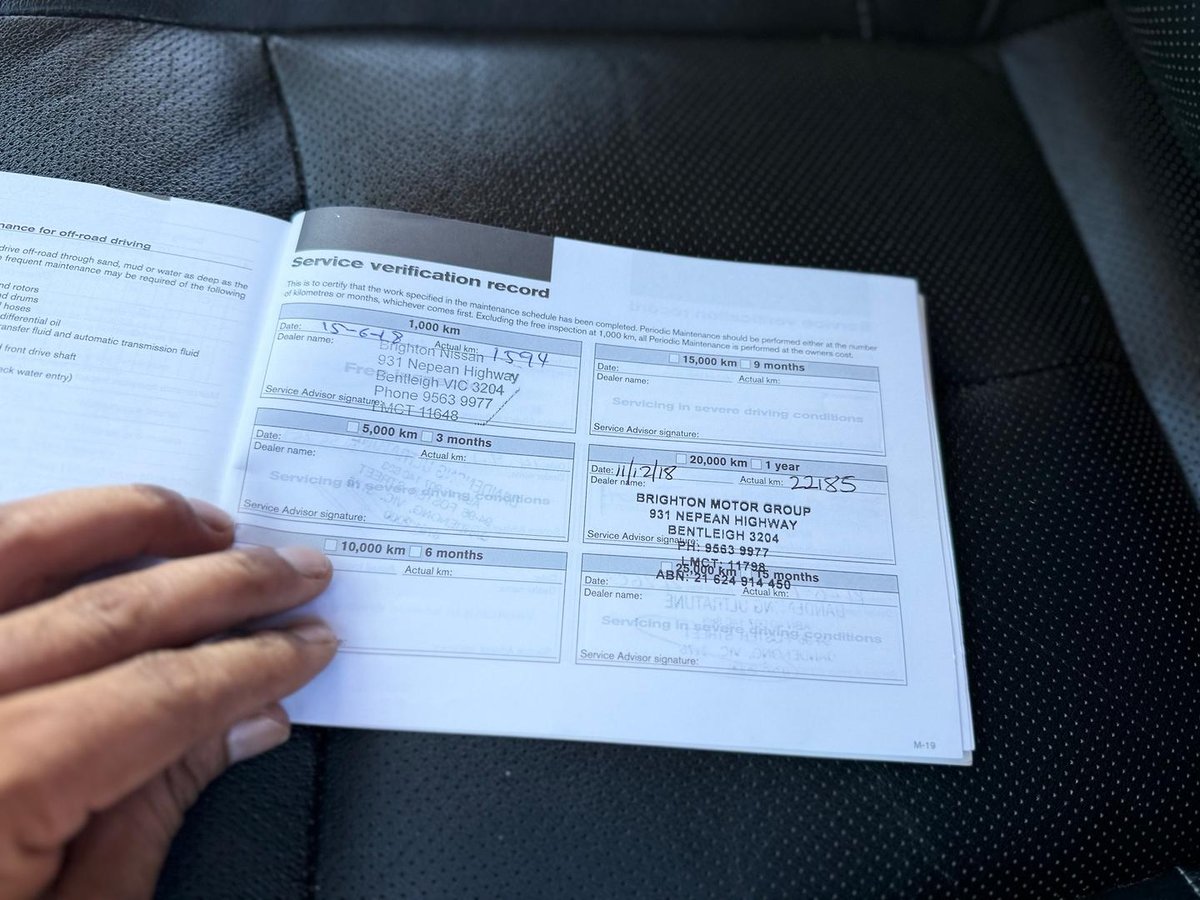 nance for off-road driving
drive off-road through sand, mud or water as deep as the
frequent maintenance may be required of the following
nd rotors
d drums
hoses
differential oil
transfer fluid and automatic transmission fluid
d front drive shaft
eck water entry)
Service verification record
This is to certify that the work specified in the maintenance schedule has been completed. Periodic Maintenance should be performed either at the number
of kilometres or months, whichever comes first. Excluding the free inspection at 1,000 km, all Periodic Maintenance is performed at the owners cost.
1,000 km
Date: 15-6-18 Actual km: 1594
Dealer name: Brighton Nissan
931 Nepean Highway
Bentleigh VIC 3204
Phone 9563 9977
Service Advisor signature: LMCT 11648
5,000 km 3 months
Date: Actual km:
Dealer name:
Servicing in severe driving conditions
Service Advisor signature:
10,000 km 6 months
Actual km:
15,000 km 9 months
Date: Actual km:
Dealer name:
Servicing in severe driving conditions
Service Advisor signature:
20,000 km 1 year
Date: 11/12/18 Actual km: 22185
Dealer name:
BRIGHTON MOTOR GROUP
931 NEPEAN HIGHWAY
BENTLEIGH 3204
Service Advisor signature:
PH: 9563 9977
LMCT: 11798
ABN: 21 624 914 450
25,000 km 15 months
Date: Actual km:
Dealer name:
Servicing in severe driving conditions
Service Advisor signature:
M-19